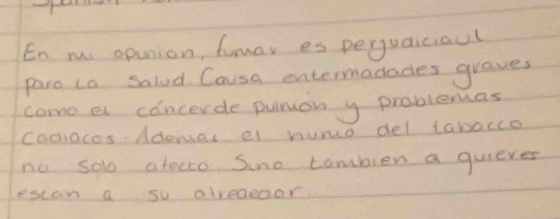 En mi opunion, fumar es perjudiciaul
para la salud. Causa entermadades graves
como el cáncer de pulmon y problemas
cadiacos. Ademas el humo del tabacco
no solo afecta sino tambien a quieres
estan a su alrededor.